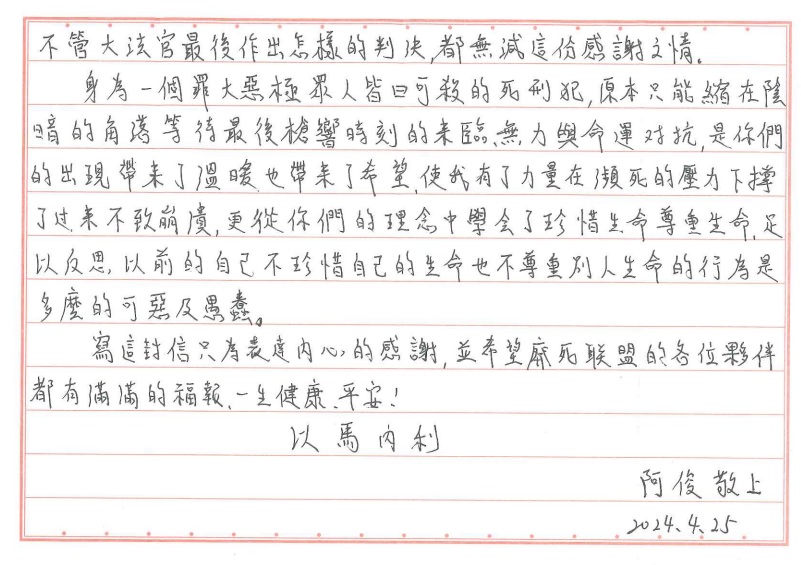 不管大法官最後作出怎樣的判決,都無減這份感謝之情。
身為一個罪大惡極眾人皆曰可殺的死刑犯,原本只能縮在陰
暗的角落等待最後槍響時刻的来臨、無力與命運对抗,是你們
的出現帶来了溫暖、也帶来了希望,使我有了力量在瀕死的壓力下撐
了过来不致崩潰,更從你們的理念中學会了珍惜生命尊重生命,足
以反思,以前的自己不珍惜自己的生命也不尊重別人生命的行為是
多麼的可惡及愚蠢。
寫這封信只為表達內心的感謝,並希望廢死联盟的各位夥伴
都有滿滿的福報、一生健康、平安!
以馬內利
阿俊敬上
2024.4.25